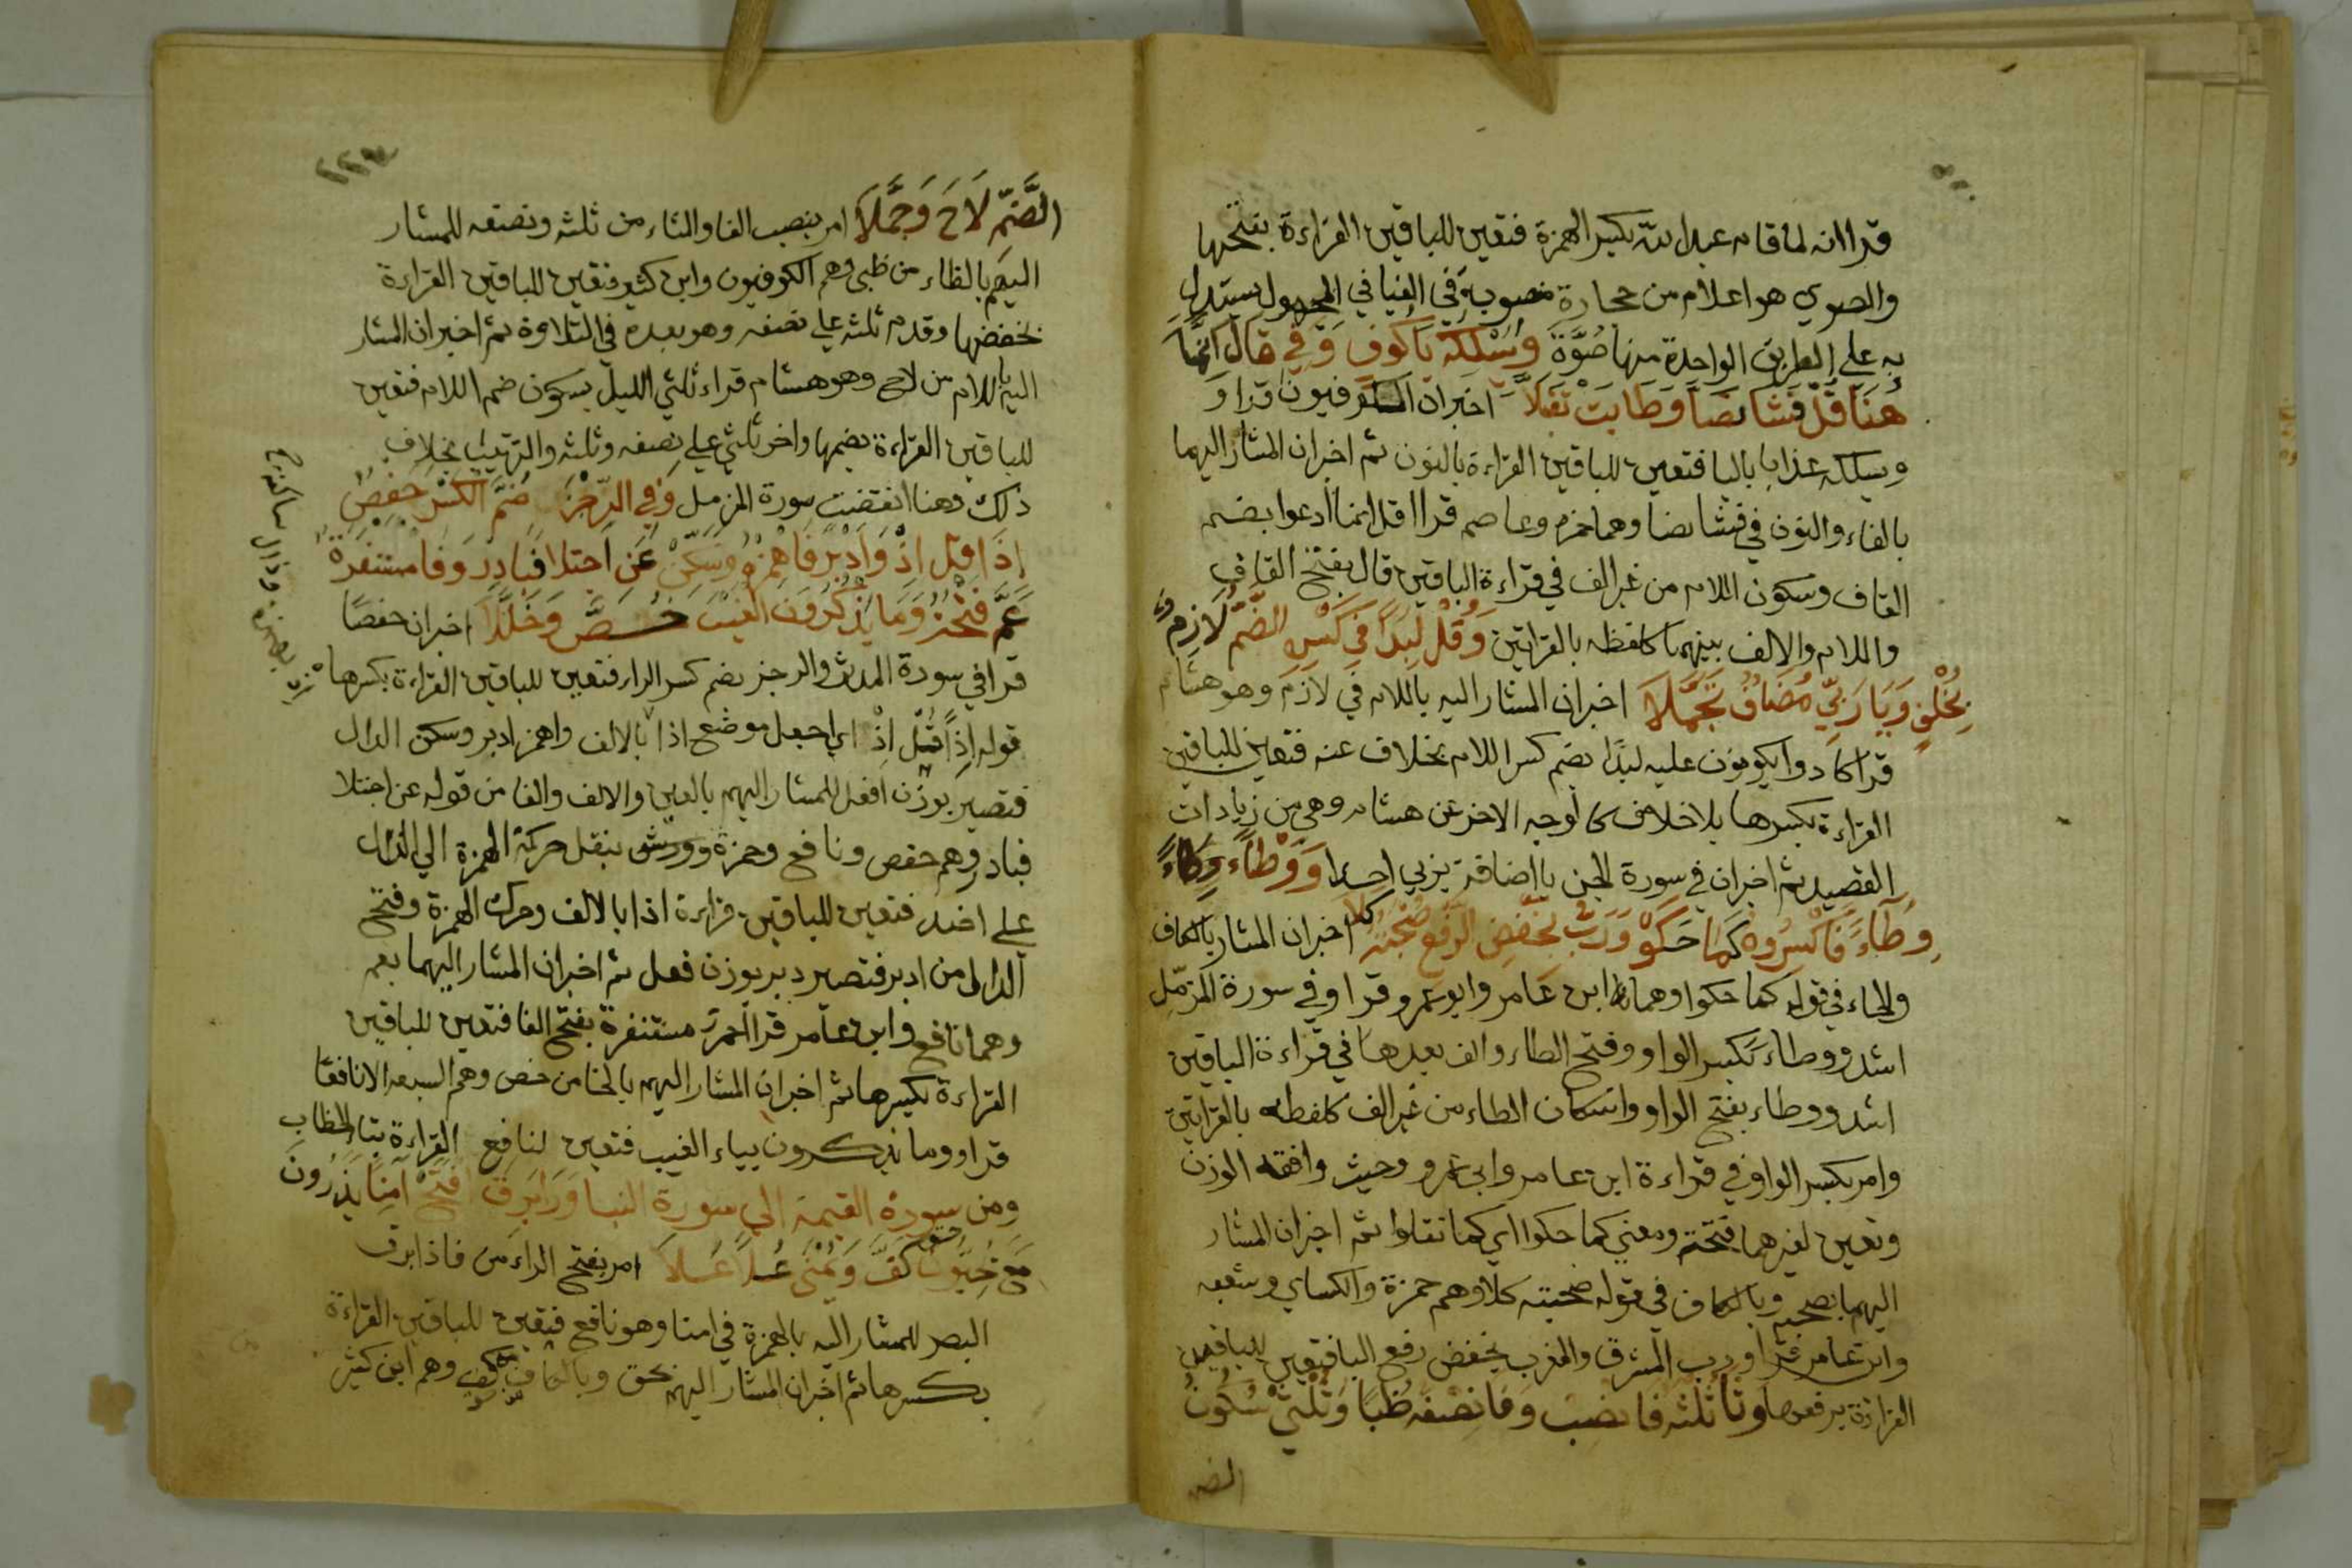 قرا انه لما قام عبد الله بكسر الهمزة فتعين للباقين القراءة بفتحها
والصوي هو اعلام من حجارة منصوبة في الفيافي المجهول يستدل
به على الطريق الواحدة منها صُوَّة وَسْلُكْهُ يَا كُوفٍ وَفِي قَالَ اِنَّمَا
هُنَا قُلْ فَشَا نَصًّا وَطَابَ تَقَبُّلَا اخبر ان الكوفيون قراو
ويسلكه عذابا باليا فتعين للباقين القراءة بالنون ثم اخبر ان المشار اليهما
بالفاء والنون في فشا نصا وهما حمزة وعاصم قرا قل انما ادعوا بضم
القاف وسكون اللام من غير الف في قراءة الباقين قال بفتح القاف
واللام والالف بينهما كلفظه بالقراتين وَقُلْ لِبَدًا فِي كَسْرِهِ الضَّمُّ لَازِمٌ
بِخُلْفٍ وَيَا رَبِّي مُضَافٌ تَجَمَّلَا اخبر ان المشار اليه باللام في لازم وهو هشام
قرا كادوا يكونون عليه لبدا بضم كسر اللام بخلاف عنه فتعين للباقين
القراءة بكسرها بلا خلاف كالوجه الاخر عن هشام وهي من زيادات
القصيد ثم اخبر ان في سورة الجن يا اضافة بربي احدا وَوَطْاءً وِطَاءً
وِطَاءً فَاكْسِرُوهُ كَمَا حَكَوْا وَرَبُّ بِخَفْضِ الرَّفْعِ صُحْبَتُهُ كَلَا اخبر ان المشار بالكاف
والحاء في قوله كما حكوا وهما ابن عامر وابو عمرو قراو في سورة المزمّل
اشد ووطاء بكسر الواو وفتح الطاء والف بعدها في قراءة الباقين
اشد ووطاء بفتح الواو واسكان الطاء من غير الف كلفظه بالقراتين
وامر بكسر الواو في قراءة ابن عامر وابي عمرو وحيث وافقه الوزن
وتعين لغيرهما فتحته ومعني كما حكوا اي كما نقلوا ثم اخبر ان المشار
اليهما بصحبه وبالكاف في قوله صحبته كلا وهم حمزة والكساي وشعبه
وابن عامر قراو رب المشرق والمغرب بخفض رفع البا فتعين للباقين
القراءة برفعها وَثَا ثُلْثَهُ فَانْصِبْ وَفَا نِصْفَهُ ظُبًا وَثُلْثَيْ سُكُونُ
الضم
٢٢٣
الضَّمِّ لَاحَ وَجَمَّلَا امر بنصب الفا والثاء من ثلثه ونصفه للمشار
اليهم بالظاء من ظبى وهم الكوفيون وابن كثير فتعين للباقين القراءة
بخفضها وقدم ثلثه على نصفه وهو بعده في التلاوة ثم اخبر ان المشار
اليه باللام من لاح وهو هشام قراء ثلثي الليل بسكون ضم اللام فتعين
للباقين القراءة بضمها واخر ثلثي على نصفه وثلثه والترتيب بخلاف
ذلك وهنا انقضت سورة المزمل وَفِي الرِّجْزَ ضُمَّ الْكَسْرَ حَفْصٌ
إِذَا قُلْ اِذْ وَاَدْبَرَ فَاهْمِزْهُ وَسَكِّنْ عَنِ اجْتِلَا فَبَادِرْ وَفَا مُسْتَنْفِرَهْ
عَمَّ فَتْحُهُ وَمَا يَذْكُرُونَ الْغَيْبَ خُصَّ وَخُلِّلَا اخبر ان حفصا
قرا في سورة المدثر والرجز بضم كسر الراء فتعين للباقين القراءة بكسرها
قوله اذا قُلْ اِذْ اي اجعل موضع اذا بالالف واهمز ادبر وسكن الدال
فتصير بوزن افعل للمشار اليهم بالعين والالف والفا من قوله عن اجتلا
فبادر وهم حفص ونافع وحمزة وورش بنقل حركة الهمزة الي الدال
على اصله فتعين للباقين قراءة اذا بالالف وحرك الهمزة وفتح
الدال من ادبر فتصير دبر بوزن فعل ثم اخبر ان المشار اليهما بعم
وهما نافع وابن عامر قرا احمر مستنفرة بفتح الفا فتعين للباقين
القراءة بكسرها ثم اخبر ان المشار اليهم بالخا من خص وهم السبعة الا نافعا
قراو وما يذكرون بياء الغيب فتعين لنافع القراءة بتا الخطاب
ومن سورة القيمة الي سورة النبا وَرَا بَرِقَ افْتَحْ اٰمِنًا يَذَرُونَ
مَعْ يُحِبُّونَ حَقٌّ كَفَّ وَيُمْنَى عُلًا عَلَا امر بفتح الراء من فاذا برق
البصر للمشار اليه بالهمزة في امنا وهو نافع فتعين للباقين القراءة
بكسرها ثم اخبر ان المشار اليهم بحق وبالكاف كف وهم ابن كثير